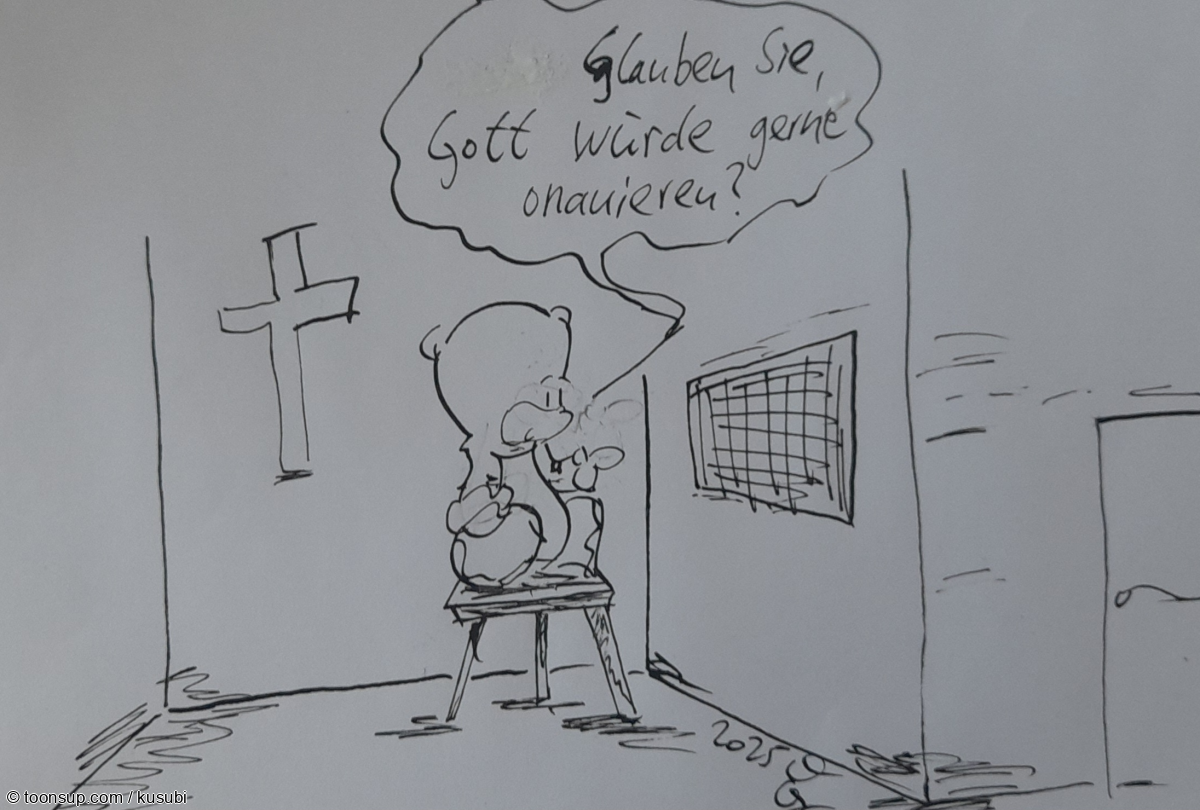 Glauben Sie,
Gott würde gerne
onanieren?
2025
© toonsup.com / kusubi